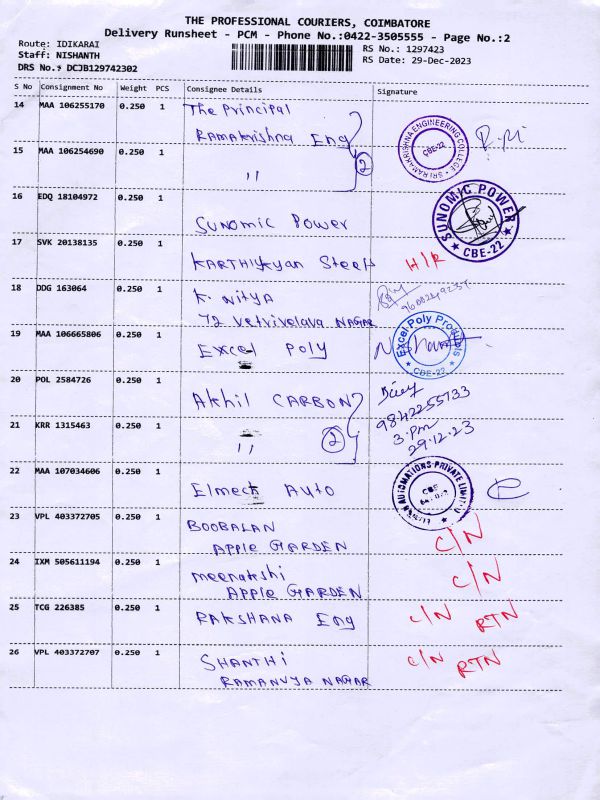 THE PROFESSIONAL COURIERS, COIMBATORE
Delivery Runsheet - PCM - Phone No.:0422-3505555 - Page No.:2
Route: IDIKARAI
RS No.: 1297423
Staff: NISHANTH
RS Date: 29-Dec-2023
DRS No.: DCJB129742302
S No Consignment No Weight PCS Consignee Details Signature
14 MAA 106255170 0.250 1 The Principal
Ramakrishna Eng
SRI RAMAKRISHNA ENGINEERING COLLEGE
CBE-22
15 MAA 106254690 0.250 1 " 2
16 EDQ 18104972 0.250 1
Sunomic Power
SUNOMIC POWER
CBE-22
17 SVK 20138135 0.250 1
KARTHIKyan Steels H/R
18 DDG 163064 0.250 1 K. Nitya
72 Vetrivelava NAGAR
19 MAA 106665806 0.250 1 Excel Poly
Excel Poly Products
CBE-22
20 POL 2584726 0.250 1 Akhil CARBON
9842255733
3.pm
29.12.23
21 KRR 1315463 0.250 1 " 2
22 MAA 107034606 0.250 1
Elmech Auto
AUTOMATIONS PRIVATE LIMITED
23 VPL 403372705 0.250 1 BOOBALAN
APPle GARDEN C/N
24 IXM 505611194 0.250 1 meenakshi
APPle GARDEN C/N
25 TCG 226385 0.250 1 RAKSHANA Eng C/N RTN
26 VPL 403372707 0.250 1 SHANTHI C/N RTN
RAMANUJA NAGAR